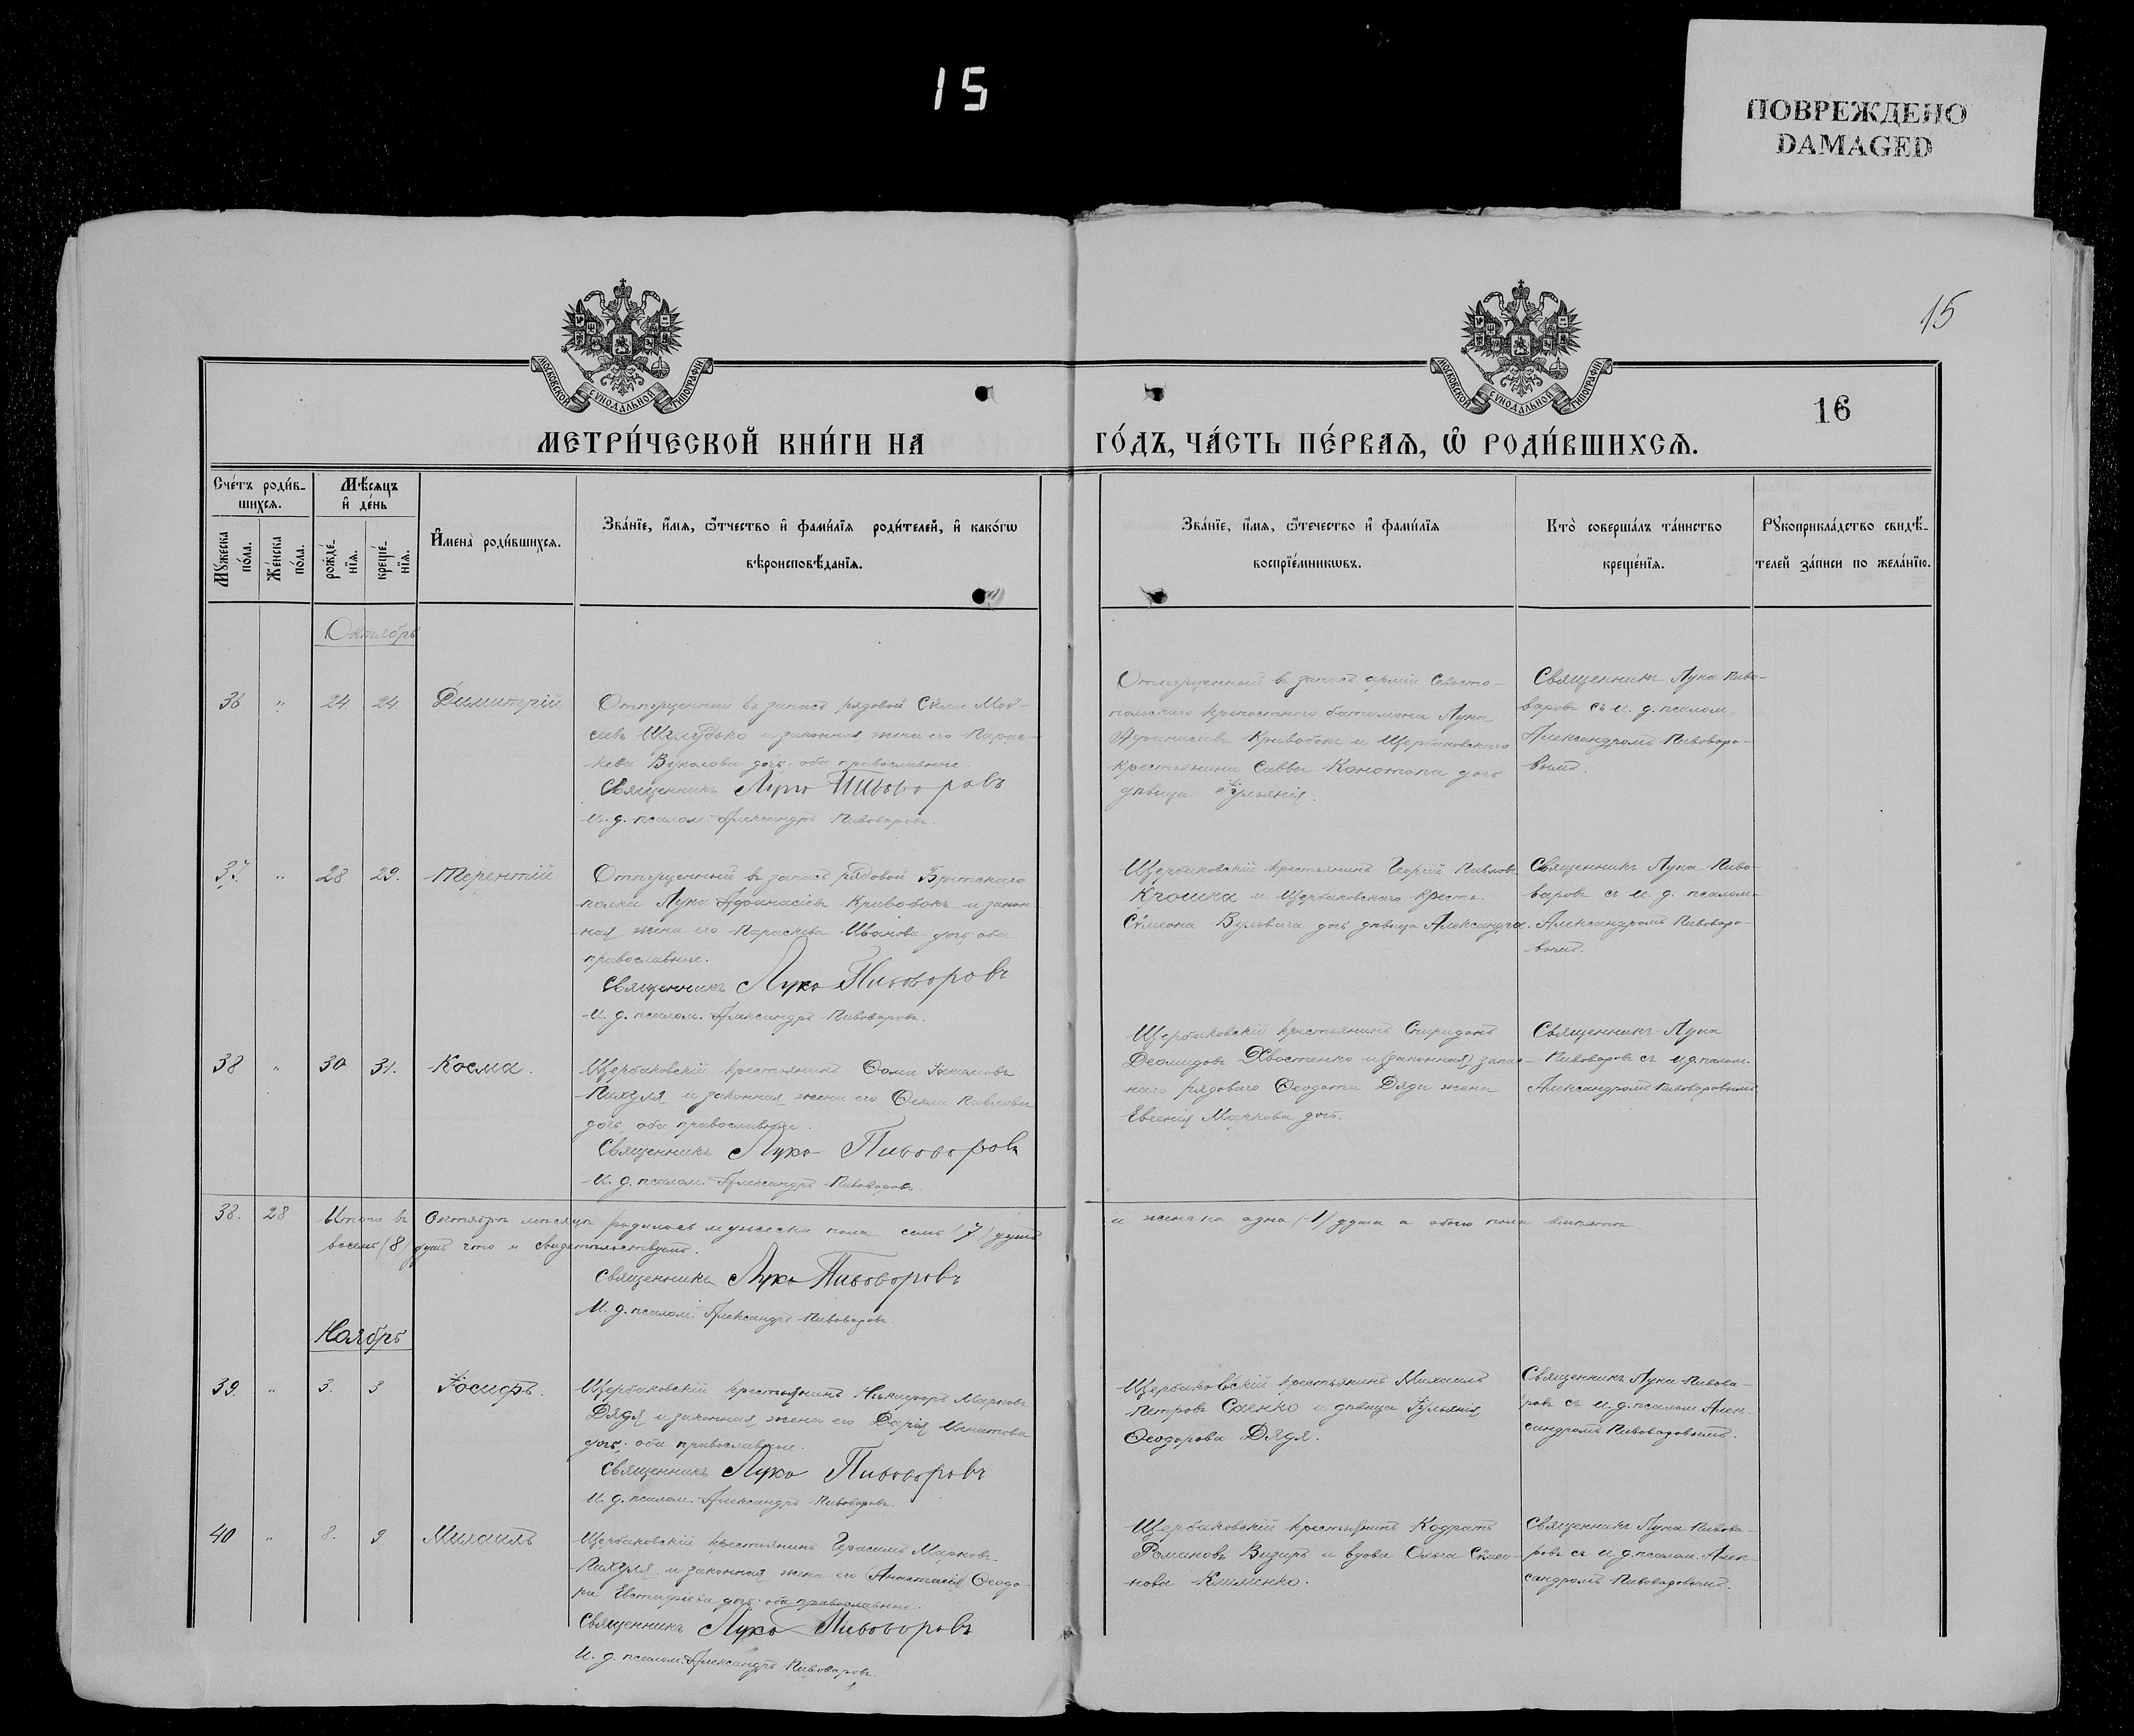 15
ПОВРЕЖДЕНО
DAMAGED
15
16
МОСКОВСКОЙ СУНОДАЛЬНОЙ ТИПОГРАФІИ
МОСКОВСКОЙ СУНОДАЛЬНОЙ ТИПОГРАФІИ
МЕТРИ́ЧЕСКОЙ КНИ́ГИ НА
ГО́ДЪ, ЧА́СТЬ ПЕ́РВАѦ, Ѡ҃ РОДИ́ВШИХСѦ.
Сче́тъ роди́в-
шихсѧ.
Мꙋ́жеска по́ла.
Же́нска по́ла.
Мѣ́сѧцъ
и҆ де́нь
рожде́-
нїѧ.
креще́-
нїѧ.
И҆мена̀ роди́вшихсѧ.
Зва́нїе, и҆́мѧ, ѻ҆́тчество и҆ фами́лїѧ роди́телей, и҆ како́гѡ
вѣроисповѣ́данїѧ.
Зва́нїе, и҆́мѧ, ѻ҆те́чество и҆ фами́лїѧ
воспрїе́мникѡвъ.
Кто̀ соверша́лъ та́инство
креще́нїѧ.
Рꙋкоприкла́дство свидѣ́-
телей за́писи по жела́нїю.
Октябрь
36 " 24. 24. Димитрій
Отпущенный въ запасъ рядовой Сѵла Мой-
сеевъ и законная жена его Парас-
кева Вуколова дочь. оба православные.
Священникъ Лука Пивоваровъ
И. д. псалом. Александръ Пивоваровъ.
Отпущенный въ запасъ арміи Севасто-
польскаго крепостного баталіона Лука
Афанасіевъ Кривобокъ и Щербаковскаго
крестьянина Саввы Конотопа дочь
дѣвица Іульянія.
Священникъ Лука Пиво-
варовъ съ и. д. псалом.
Александромъ Пивоваро-
вымъ.
37. " 28 29. Терентій
Отпущенный въ запасъ рядовой Брестскаго
полка Лука Афанасіевъ Кривобокъ и закон-
ная жена его Параскева Иванова дочь, оба
православные.
Священникъ Лука Пивоваровъ
И. д. псалом. Александръ Пивоваровъ.
Щербаковскій крестьянинъ Георгій Павловъ
Крошка и Щербаковскаго крестъ.
Сѵмеона дочь дѣвица Александра.
Священникъ Лука Пиво-
варовъ съ и д. псалом.
Александромъ Пивоваро-
вымъ.
38 " 30 31. Косма.
Щербаковскій крестьянинъ Ѳома
Пихуля и законная жена его Ѳекла Павлова
дочь, оба православные.
Священникъ Лука Пивоваровъ
И. д. псалом. Александръ Пивоваровъ.
Щербаковскій крестьянинъ Спиридонъ
Деомидовъ Хвостенко и (законная) запас-
наго рядоваго Ѳеодота Дяди жена
Евгенія Маркова дочь.
Священникъ Лука
Пивоваровъ съ и. д. псалом.
Александромъ Пивоваровымъ
38. 28 Итого въ Октябрѣ мѣсяцѣ родилось мужеска пола семь (7) душъ
и женска одна (1) душа а обоего пола вмѣстѣ
восемь (8) душъ что и свидетельствуемъ.
Священникъ Лука Пивоваровъ
И. д. псалом. Александръ Пивоваровъ
Ноябрь
39. " 3. 3 Іосифъ.
Щербаковскій крестьянинъ Никифоръ Марковъ
Дядя и законная жена его Дарія
дочь. оба православные.
Священникъ Лука Пивоваровъ
И. д. псалом. Александръ Пивоваровъ.
Щербаковскій крестьянинъ Михаилъ
Петровъ Саенко и дѣвица Іульянія
Ѳеодорова Дядя.
Священникъ Лука Пивова-
ровъ съ и. д. псалом. Алек-
сандромъ Пивоваровымъ.
40 " 8. 9 Михаилъ
Щербаковскій крестьянинъ Герасимъ Марковъ
Пихуля и законная жена его Анастасія Ѳеодо-
ра Евстафіева дочь. оба православные.
Священникъ Лука Пивоваровъ
И. д. псалом. Александръ Пивоваровъ.
Щербаковскій крестьянинъ Кодратъ
Романовъ Визиръ и вдова Ольга Сѵмео-
нова Клименко.
Священникъ Лука Пивова-
ровъ съ и. д. псалом. Алек-
сандромъ Пивоваровымъ.